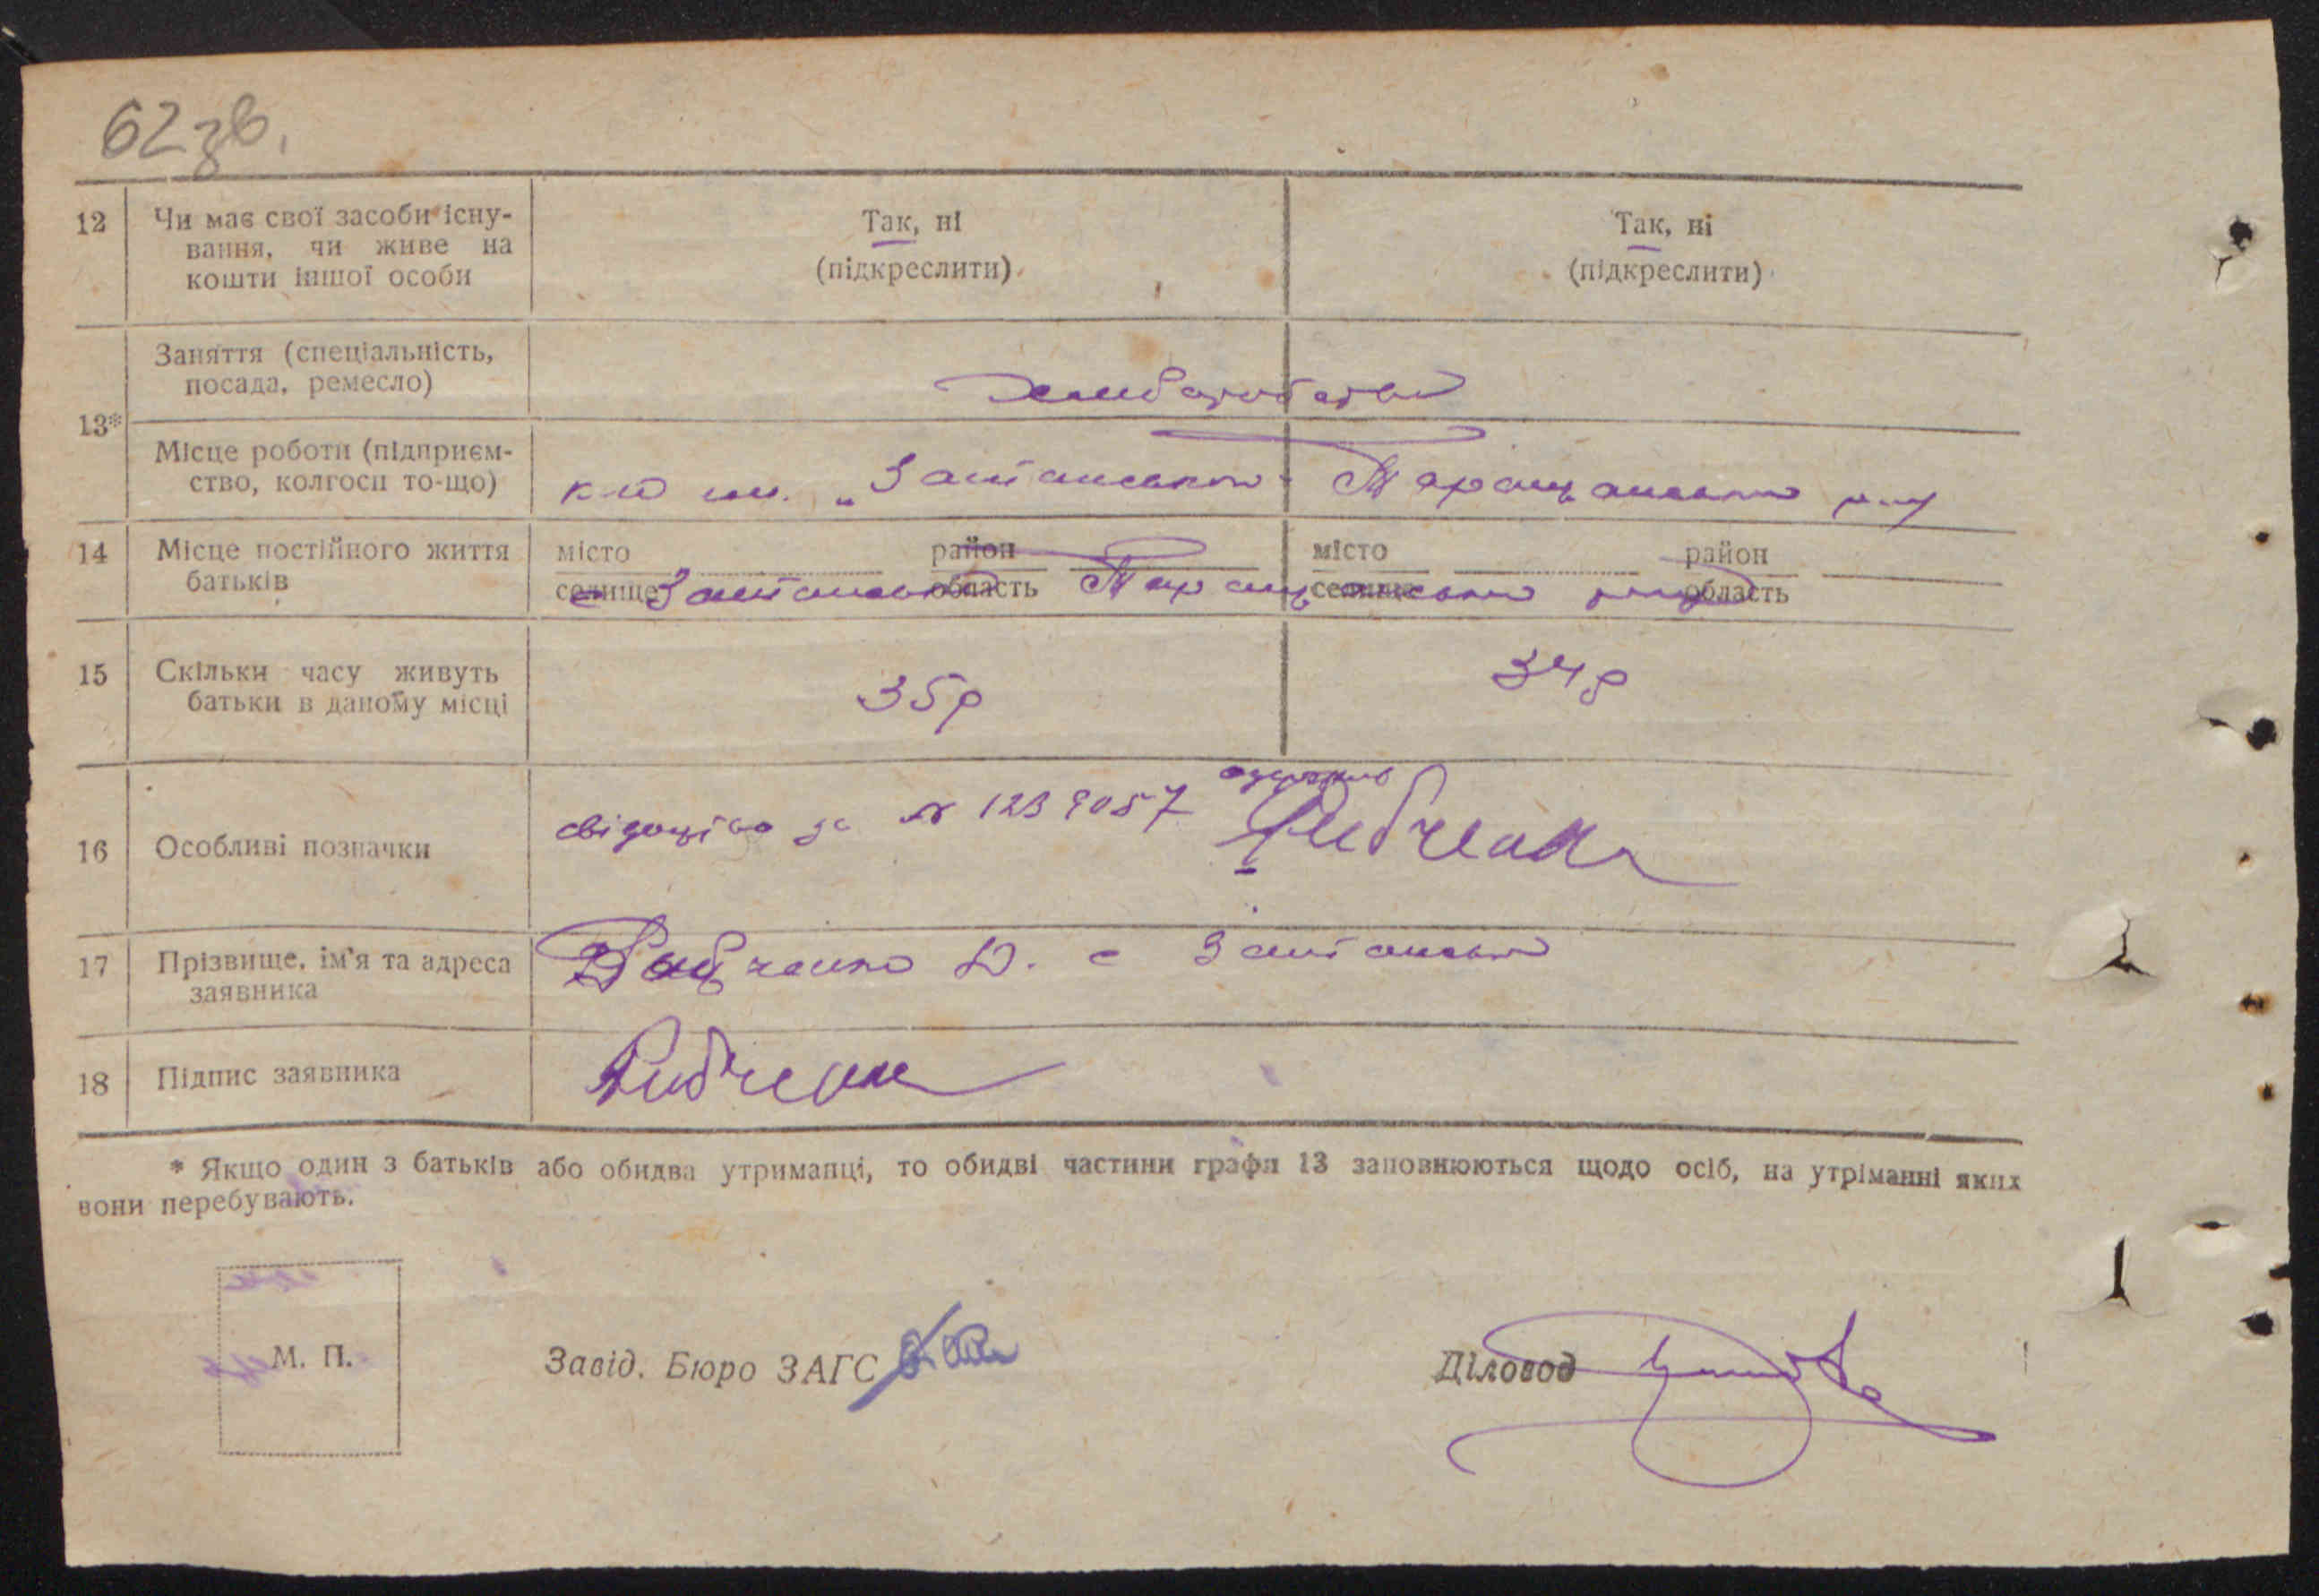 62 зв.
12 Чи має свої засоби існу-
вання, чи живе на
кошти іншої особи
Так, ні
(підкреслити)
Так, ні
(підкреслити)
13*
Заняття (спеціальність,
посада, ремесло)
Хліборобство
Місце роботи (підприєм-
ство, колгосп то-що)
Таращанського р-ну
14 Місце постійного життя
батьків
місто район
селище область
місто район
селище область
Таращанського
15 Скільки часу живуть
батьки в даному місці
35р
34р
16 Особливі позначки
свідоцтво за № 1239057 одержав
Рибченко
17 Прізвище, ім'я та адреса
заявника
18 Підпис заявника
Рибченко
* Якщо один з батьків або обидва утриманці, то обидві частини графи 13 заповнюються щодо осіб, на утріманні яких
вони перебувають.
М. П.
Завід. Бюро ЗАГС
Діловод